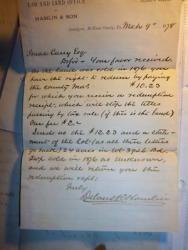 LAW AND LAND OFFICE
HAMLIN & SON
Smethport, McKean County, Pa. Mch 9th 187
Isaac Casey Esq
Dr Sir - Your favor received
as the lands was sold in 1876 you
have the right to redeem by paying
the County Treas $10.23
for which you receive a redemption
receipt which will stop the titles
passing by tax sale (if this is the land)
Our fee $2-
Send us the $12.23 and a state-
ment of the Lot (as all there
is , 124 acres in Wt 3962
sold in 1876 as Unknown,
and we will return you the
redemption rcpt.
Truly
Delano R Hamlin